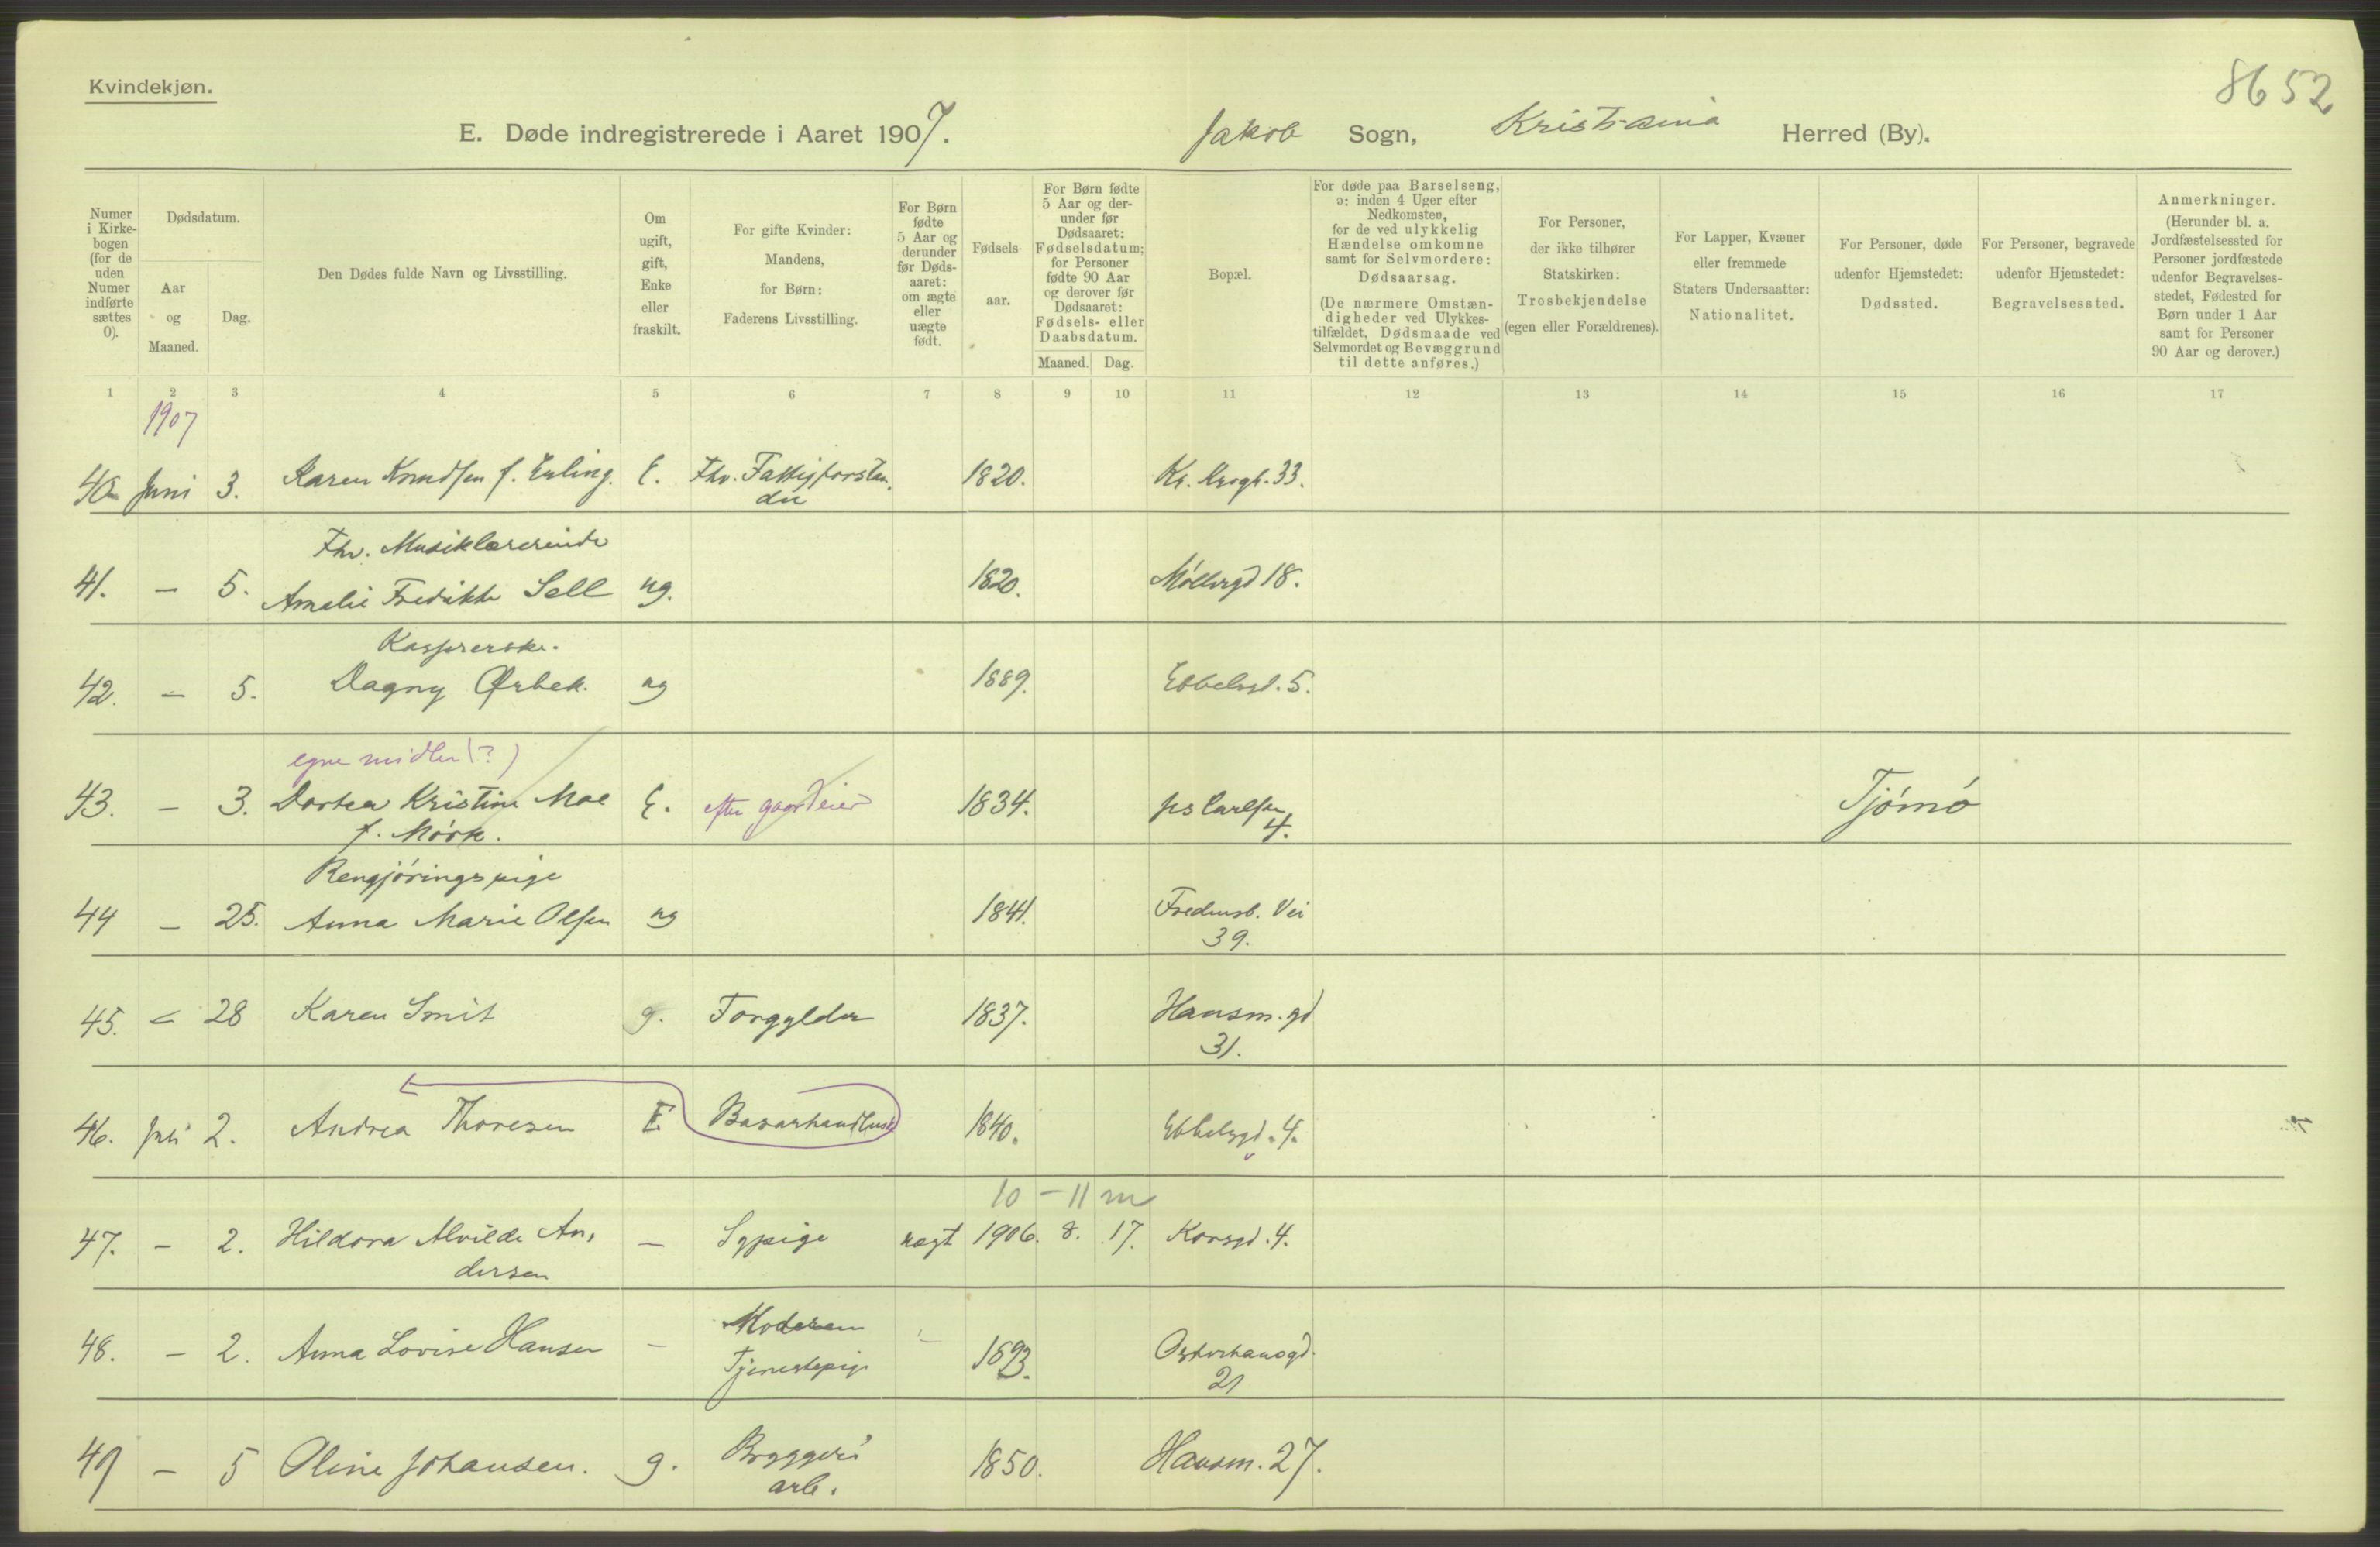 Kvindekjøn.
8652
E. Døde indregistrerede i Aaret 1907. Jakob Sogn, Kristiania Herred (By).
Numer i Kirkebogen (for de uden Numer indførte sættes 0).
Dødsdatum.
Aar og Maaned.
Dag.
Den Dødes fulde Navn og Livsstilling.
Om ugift, gift, Enke eller fraskilt.
For gifte Kvinder: Mandens, for Børn: Faderens Livsstilling.
For Børn fødte 5 Aar og derunder før Dødsaaret: om ægte eller uægte født.
Fødselsaar.
For Børn fødte 5 Aar og derunder før Dødsaaret: Fødselsdatum; for Personer fødte 90 Aar og derover før Dødsaaret: Fødsels- eller Daabsdatum.
Maaned. Dag.
Bopæl.
For døde paa Barselseng, ɔ: inden 4 Uger efter Nedkomsten, for de ved ulykkelig Hændelse omkomne samt for Selvmordere: Dødsaarsag.
(De nærmere Omstændigheder ved Ulykkestilfældet, Dødsmaade ved Selvmordet og Bevæggrund til dette anføres.)
For Personer, der ikke tilhører Statskirken: Trosbekjendelse (egen eller Forældrenes).
For Lapper, Kvæner eller fremmede Staters Undersaatter: Nationalitet.
For Personer, døde udenfor Hjemstedet: Dødssted.
For Personer, begravede udenfor Hjemstedet: Begravelsessted.
Anmerkninger.
(Herunder bl. a. Jordfæstelsessted for Personer jordfæstede udenfor Begravelsesstedet, Fødested for Børn under 1 Aar samt for Personer 90 Aar og derover.)
1 2 3 4 5 6 7 8 9 10 11 12 13 14 15 16 17
1907
40 Juni 3. Karen Knudsen f. E. Fhv. Fattigforstan- 1820. Kr. Krogh. 33.
der
Fhv. Musiklærerinde
41. - 5. Amalie Fredrikke Sell ug. 1820. Møllergd 18.
Kasserske.
42. - 5. Dagny Ørbek. ug 1889. Ebbelsgd. 5.
egne midler (?)
43. - 3. Dortea Kristine Moe E. efter gaardeier 1834. Tjómó
f. Mórk. 4.
Rengjóringspige
44 - 25. Anna Marie Olsen ug 1841. Fredensb. Vei
39.
45. - 28 Karen Smit g. Forgylder 1837. Hausm. gd
31.
46. Juli 2. Andrea Thoresen E Basarhandlerske 1840. Ebbelsgd. 4.
10 - 11 m
47. - 2. Hildora Alvilde An- - Sypige uægt 1906. 8. 17. Korsgd. 4.
dersen
Moderen
48. - 2. Anna Lovise Hansen - Tjenestepige 1893. Osterhausgd.
21
49 - 5 Oline Johansen. g. Bryggeri 1850. Hausm. 27.
arb.